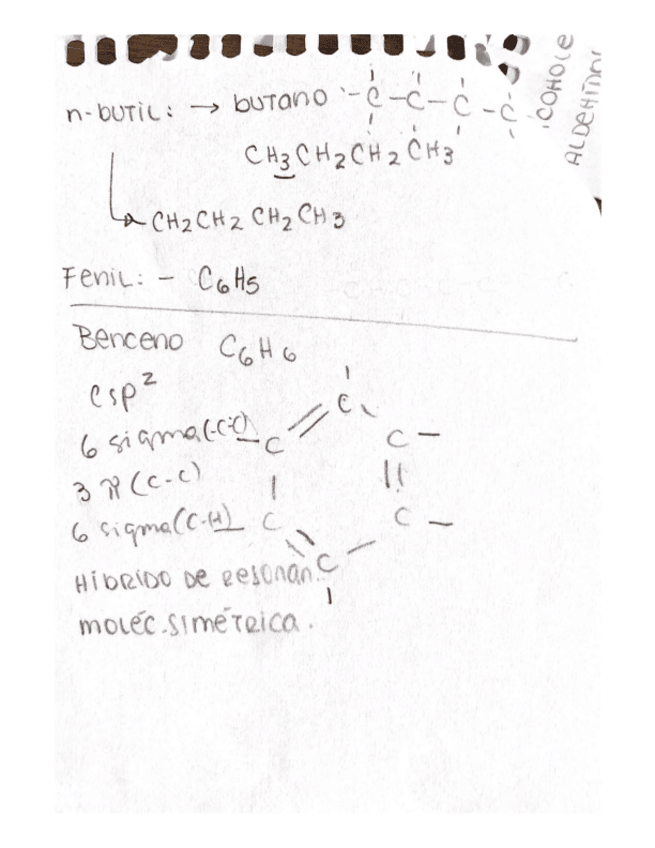 n-butil: → butano -C-C-C-C
CH3CH2CH2CH3
CH2CH2CH2CH3
Fenil: - C6H5
Benceno C6H6
Csp²
6 sigma(C-C)
3 π (C-C)
6 sigma(C-H)
Híbrido de resonan
moléc. simétrica.
C
C
C
C
C
C
COHOLE